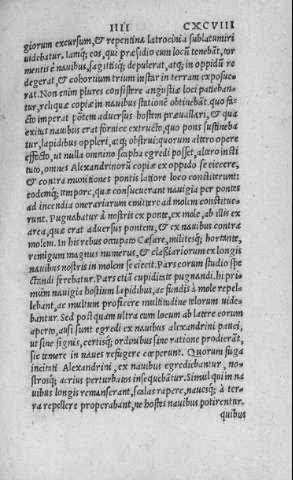 IIII CXCVIII
giorum excursum, & repentina latrocinia sublatumiri
uidebatur. Ianiq; eos, qui præsidio eum locũ tenebãt, tor
mentis è nauibus, sagittisq; depulerat, atq; in oppidũ re
degerat, & cohortium trium instar in terram exposue-
rat. Non enim plures consistere angustiæ loci patieban-
tur, reliquæ copiæ in nauibus stationẽ obtinebãt. quo fa-
cto imperat põtem aduersus hostem præuallari, & qua
exitus nauibus erat fornice extructo, quo pons sustineba
tur, lapidibus oppleri, atq; obstrui: quorum altero opere
effecto, ut nulla omnino scapha egredi posset, altero insti
tuto, omnes Alexandrinorũ copiæ ex oppido se eiecere,
& contra munitiones pontis latiore loco constiterunt:
eodemq; tempore, quæ consueuerant nauigia per pontes
ad incendia onerariarum emittere ad molem constitue-
runt. Pugnabatur à nostris ex ponte, ex mole, ab illis ex
area, quæ erat aduersus pontem, & ex nauibus contra
molem. In his rebus occupato Cæsare, militesq; hortante,
remigum magnus numerus, & classiariorum ex longis
nauibus nostris in molem se eiecit. Pars eorum studio spe
ctandi ferebatur. Pars etiã cupiditate pugnandi. hi pri-
mum nauigia hostium lapidibus, ac fundis à mole repel-
lebant, ac multum proficere multitudine telorum uide-
bantur. Sed post quam ultra eum locum ab latere eorum
aperto, ausi sunt egredi ex nauibus alexandrini pauci,
ut sine signis, certisq; ordinibus sine ratione prodierãt,
sic temere in naues refugere cœperunt. Quorum fuga
incitati Alexandrini, ex nauibus egrediebantur, no-
strosq; acrius perturbatos insequebãtur. Simul qui in na
uibus longis remanserant, scalas rapere, nauesq; à ter-
ra repellere properabant, ne hostes nauibus potirentur.
quibus